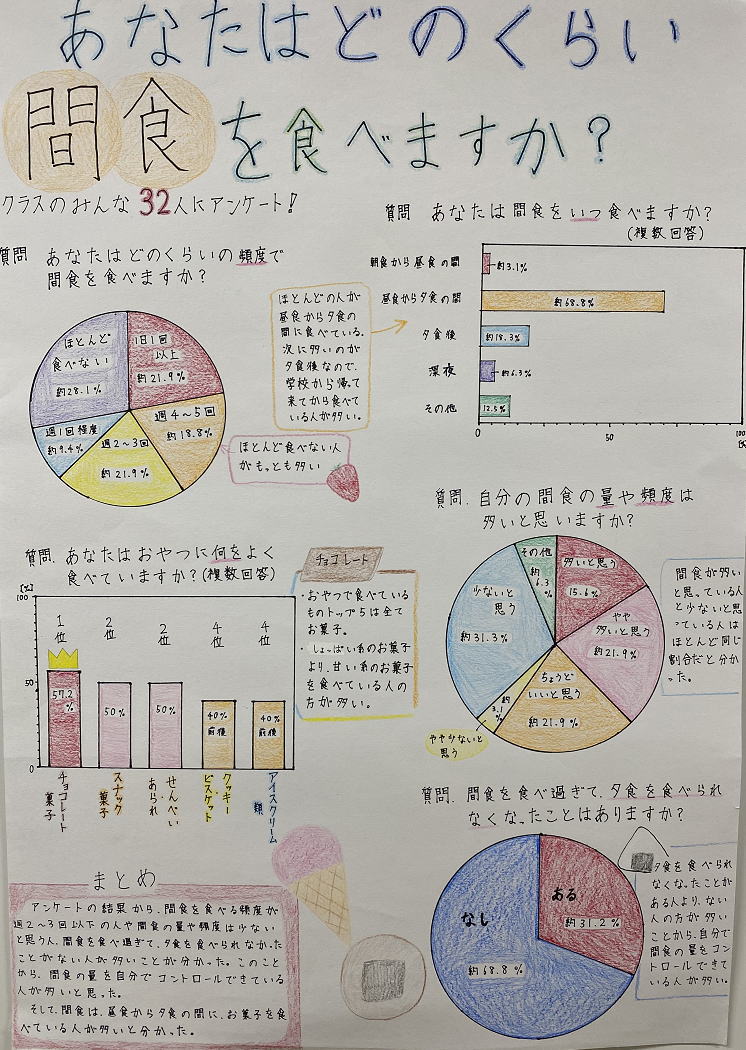 あなたはどのくらい
間食を食べますか?
クラスのみんな32人にアンケート!
質問 あなたはどのくらいの頻度で
間食を食べますか?
1日1回
以上
約21.9%
週4～5回
約18.8%
週2～3回
約21.9%
週1回程度
約9.4%
ほとんど
食べない
約28.1%
ほとんどの人が
昼食から夕食の
間に食べている。
次に多いのが
夕食後なので、
学校から帰って
来てから食べて
いる人が多い。
ほとんど食べない人
がもっとも多い
質問 あなたは間食をいつ食べますか?
(複数回答)
朝食から昼食の間
約3.1%
昼食から夕食の間
約68.8%
夕食後
約18.3%
深夜
約6.3%
その他
12.5%
0
50
100
質問.あなたはおやつに何をよく
食べていますか?(複数回答)
[%]
100
50
0
1位
2位
2位
4位
4位
57.2%
50%
50%
40%
前後
40%
前後
チョコレート
菓子
スナック
菓子
せんべい
あられ
クッキー
ビスケット
アイスクリーム
類
チョコレート
・おやつで食べている
ものトップ5は全て
お菓子。
・しょっぱい系のお菓子
より、甘い系のお菓子
を食べている人の
方が多い。
質問.自分の間食の量や頻度は
多いと思いますか?
多いと思う
15.6%
やや
多いと思う
約21.9%
ちょうど
いいと思う
約21.9%
約
3.1
%
やや少ないと
思う
少ないと
思う
約31.3%
その他
約
6.3
%
間食が多い
と思っている人
と少ないと思
っている人は
ほとんど同じ
割合だと分か
った。
質問.間食を食べ過ぎて、夕食を食べられ
なくなったことはありますか?
ある
約31.2%
なし
約68.8%
夕食を食べられ
なくなったことが
ある人より、ない
人の方が多い
ことから、自分で
間食の量をコン
トロールできて
いる人が多い。
まとめ
アンケートの結果から、間食を食べる頻度が
週2～3回以下の人や間食の量や頻度は少ない
と思う人、間食を食べ過ぎて、夕食を食べられなかった
ことがない人が多いことが分かった。このこと
から、間食の量を自分でコントロールできている
人が多いと思った。
そして、間食は、昼食から夕食の間に、お菓子を食
べている人が多いと分かった。